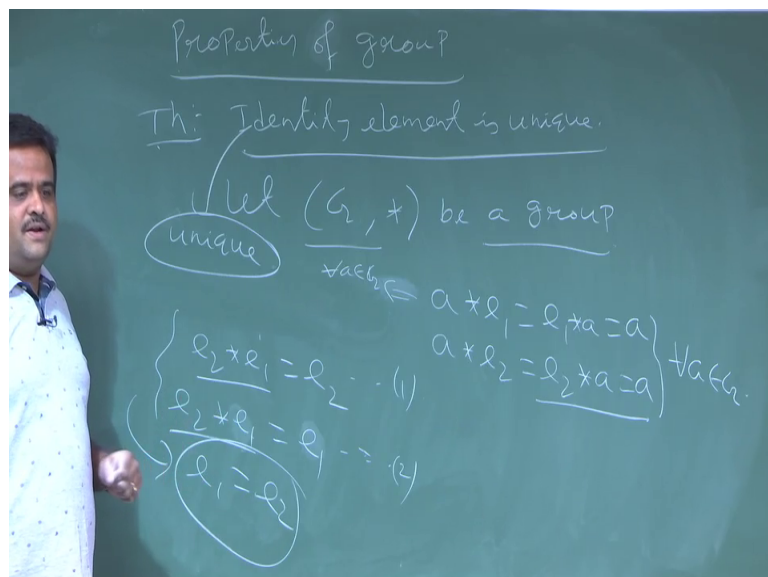 Properties of group
Th: Identity element is unique.
Let (G, *) be a group
unique
∀a∈G ⇐ a * e₁ = e₁ * a = a
a * e₂ = e₂ * a = a } ∀a∈G.
e₂ * e₁ = e₂ ... (1)
e₂ * e₁ = e₁ ... (2)
e₁ = e₂